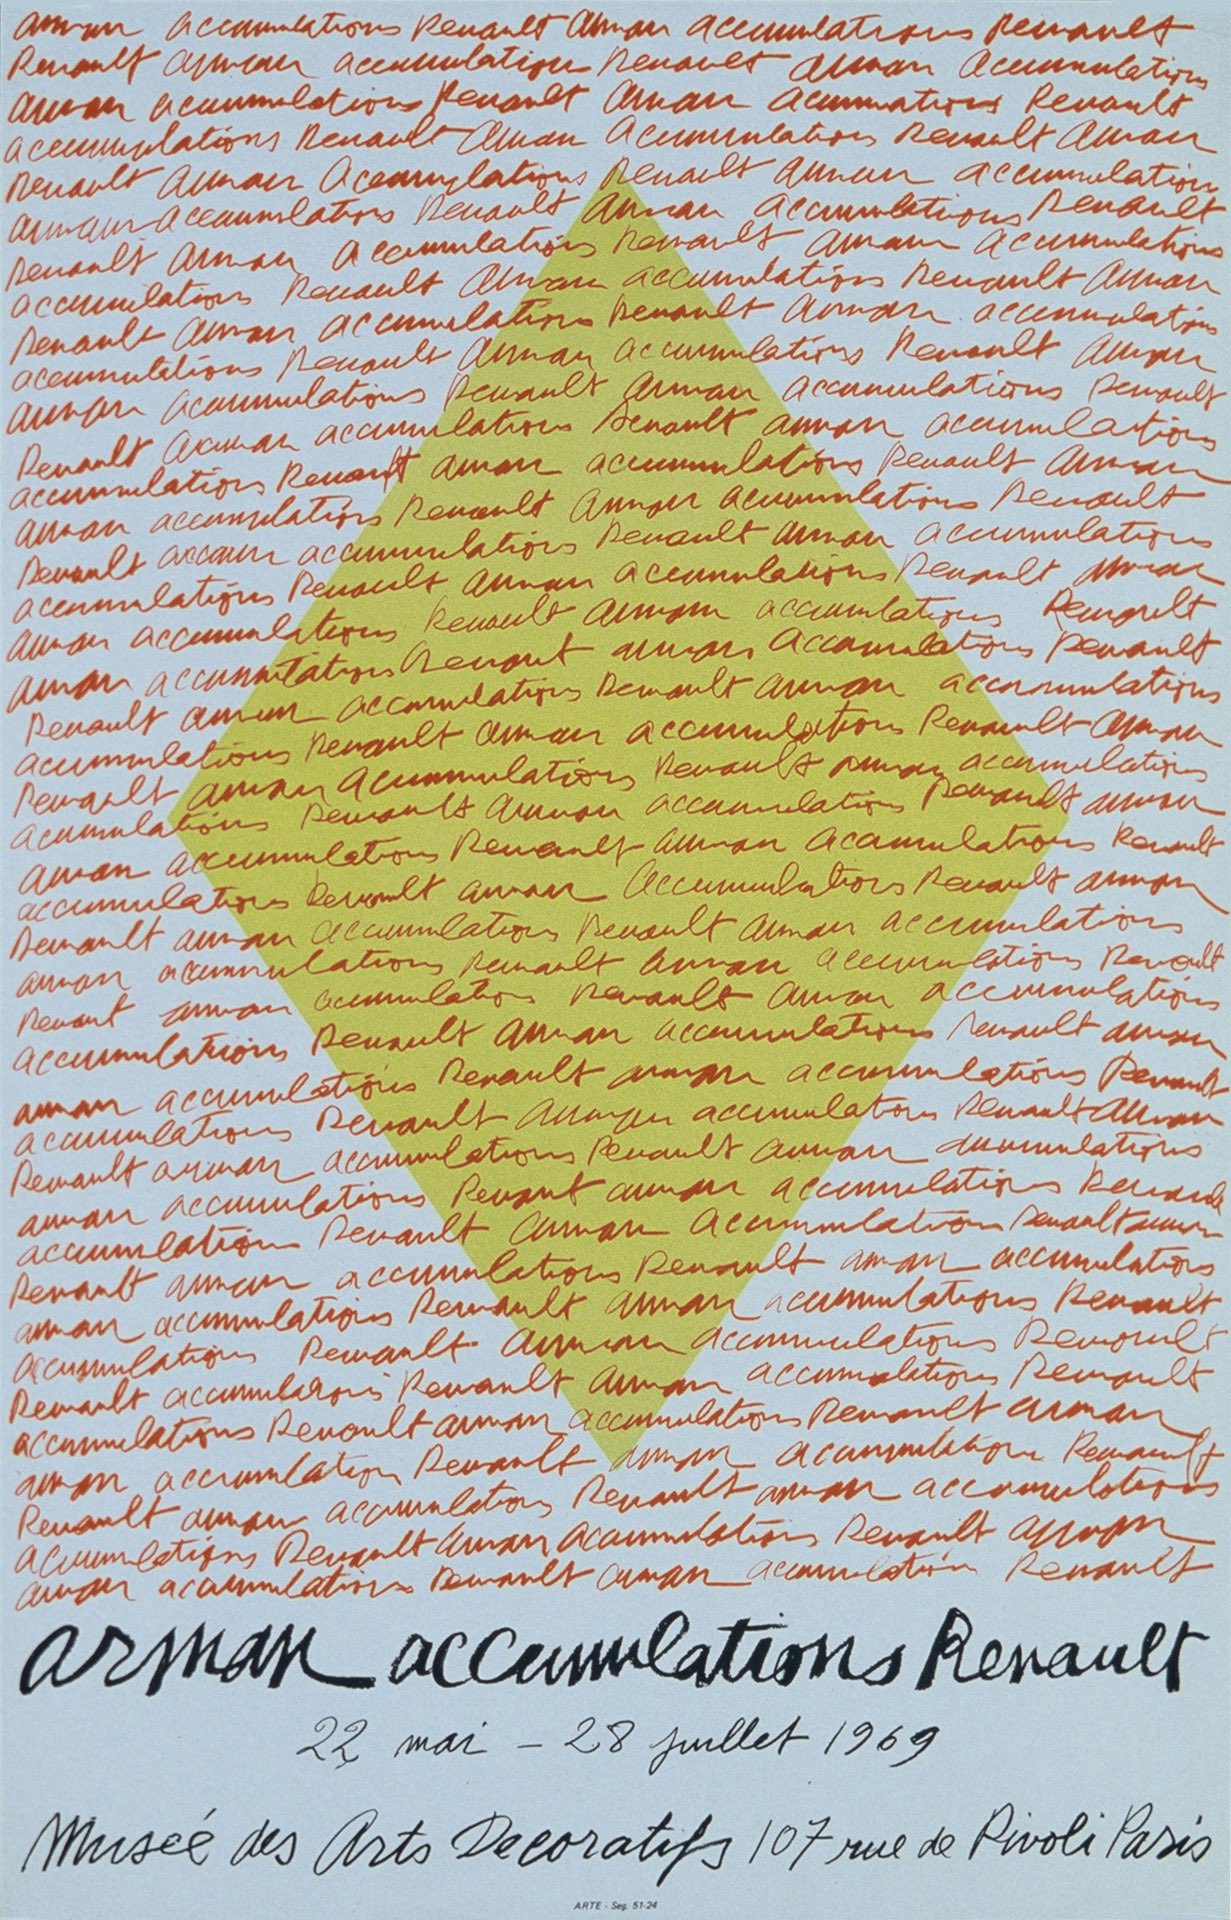 arman accumulations Renault arman accumulations Renault
Renault arman accumulations Renault arman accumulations
arman accumulations Renault arman accumulations Renault
accumulations Renault arman accumulations Renault arman
Renault arman accumulations Renault arman accumulations
arman accumulations Renault arman accumulations Renault
Renault arman accumulations Renault arman accumulations
accumulations Renault arman accumulations Renault arman
Renault arman accumulations Renault arman accumulations
accumulations Renault arman accumulations Renault arman
arman accumulations Renault arman accumulations Renault
Renault arman accumulations Renault arman accumulations
accumulations Renault arman accumulations Renault arman
arman accumulations Renault arman accumulations Renault
Renault arman accumulations Renault arman accumulations
accumulations Renault arman accumulations Renault arman
arman accumulations Renault arman accumulations Renault
arman accumulations Renault arman accumulations Renault
Renault arman accumulations Renault arman accumulations
accumulations Renault arman accumulations Renault arman
Renault arman accumulations Renault arman accumulations
accumulations Renault arman accumulations Renault arman
arman accumulations Renault arman accumulations Renault
accumulations Renault arman accumulations Renault arman
Renault arman accumulations Renault arman accumulations
arman accumulations Renault arman accumulations Renault
Renault arman accumulations Renault arman accumulations
accumulations Renault arman accumulations Renault arman
arman accumulations Renault arman accumulations Renault
accumulations Renault arman accumulations Renault arman
Renault arman accumulations Renault arman accumulations
arman accumulations Renault arman accumulations Renault
accumulations Renault arman accumulations Renault arman
Renault arman accumulations Renault arman accumulations
arman accumulations Renault arman accumulations Renault
accumulations Renault arman accumulations Renault
Renault accumulations Renault arman accumulations Renault
accumulations Renault arman accumulations Renault arman
arman accumulation Renault arman accumulations Renault
Renault arman accumulations Renault arman accumulations
accumulations Renault arman accumulations Renault arman
arman accumulations Renault arman accumulation Renault
arman accumulations Renault
22 mai - 28 juillet 1969
Musée des Arts Decoratifs 107 rue de Rivoli Paris
ARTE - Seg. 51-24